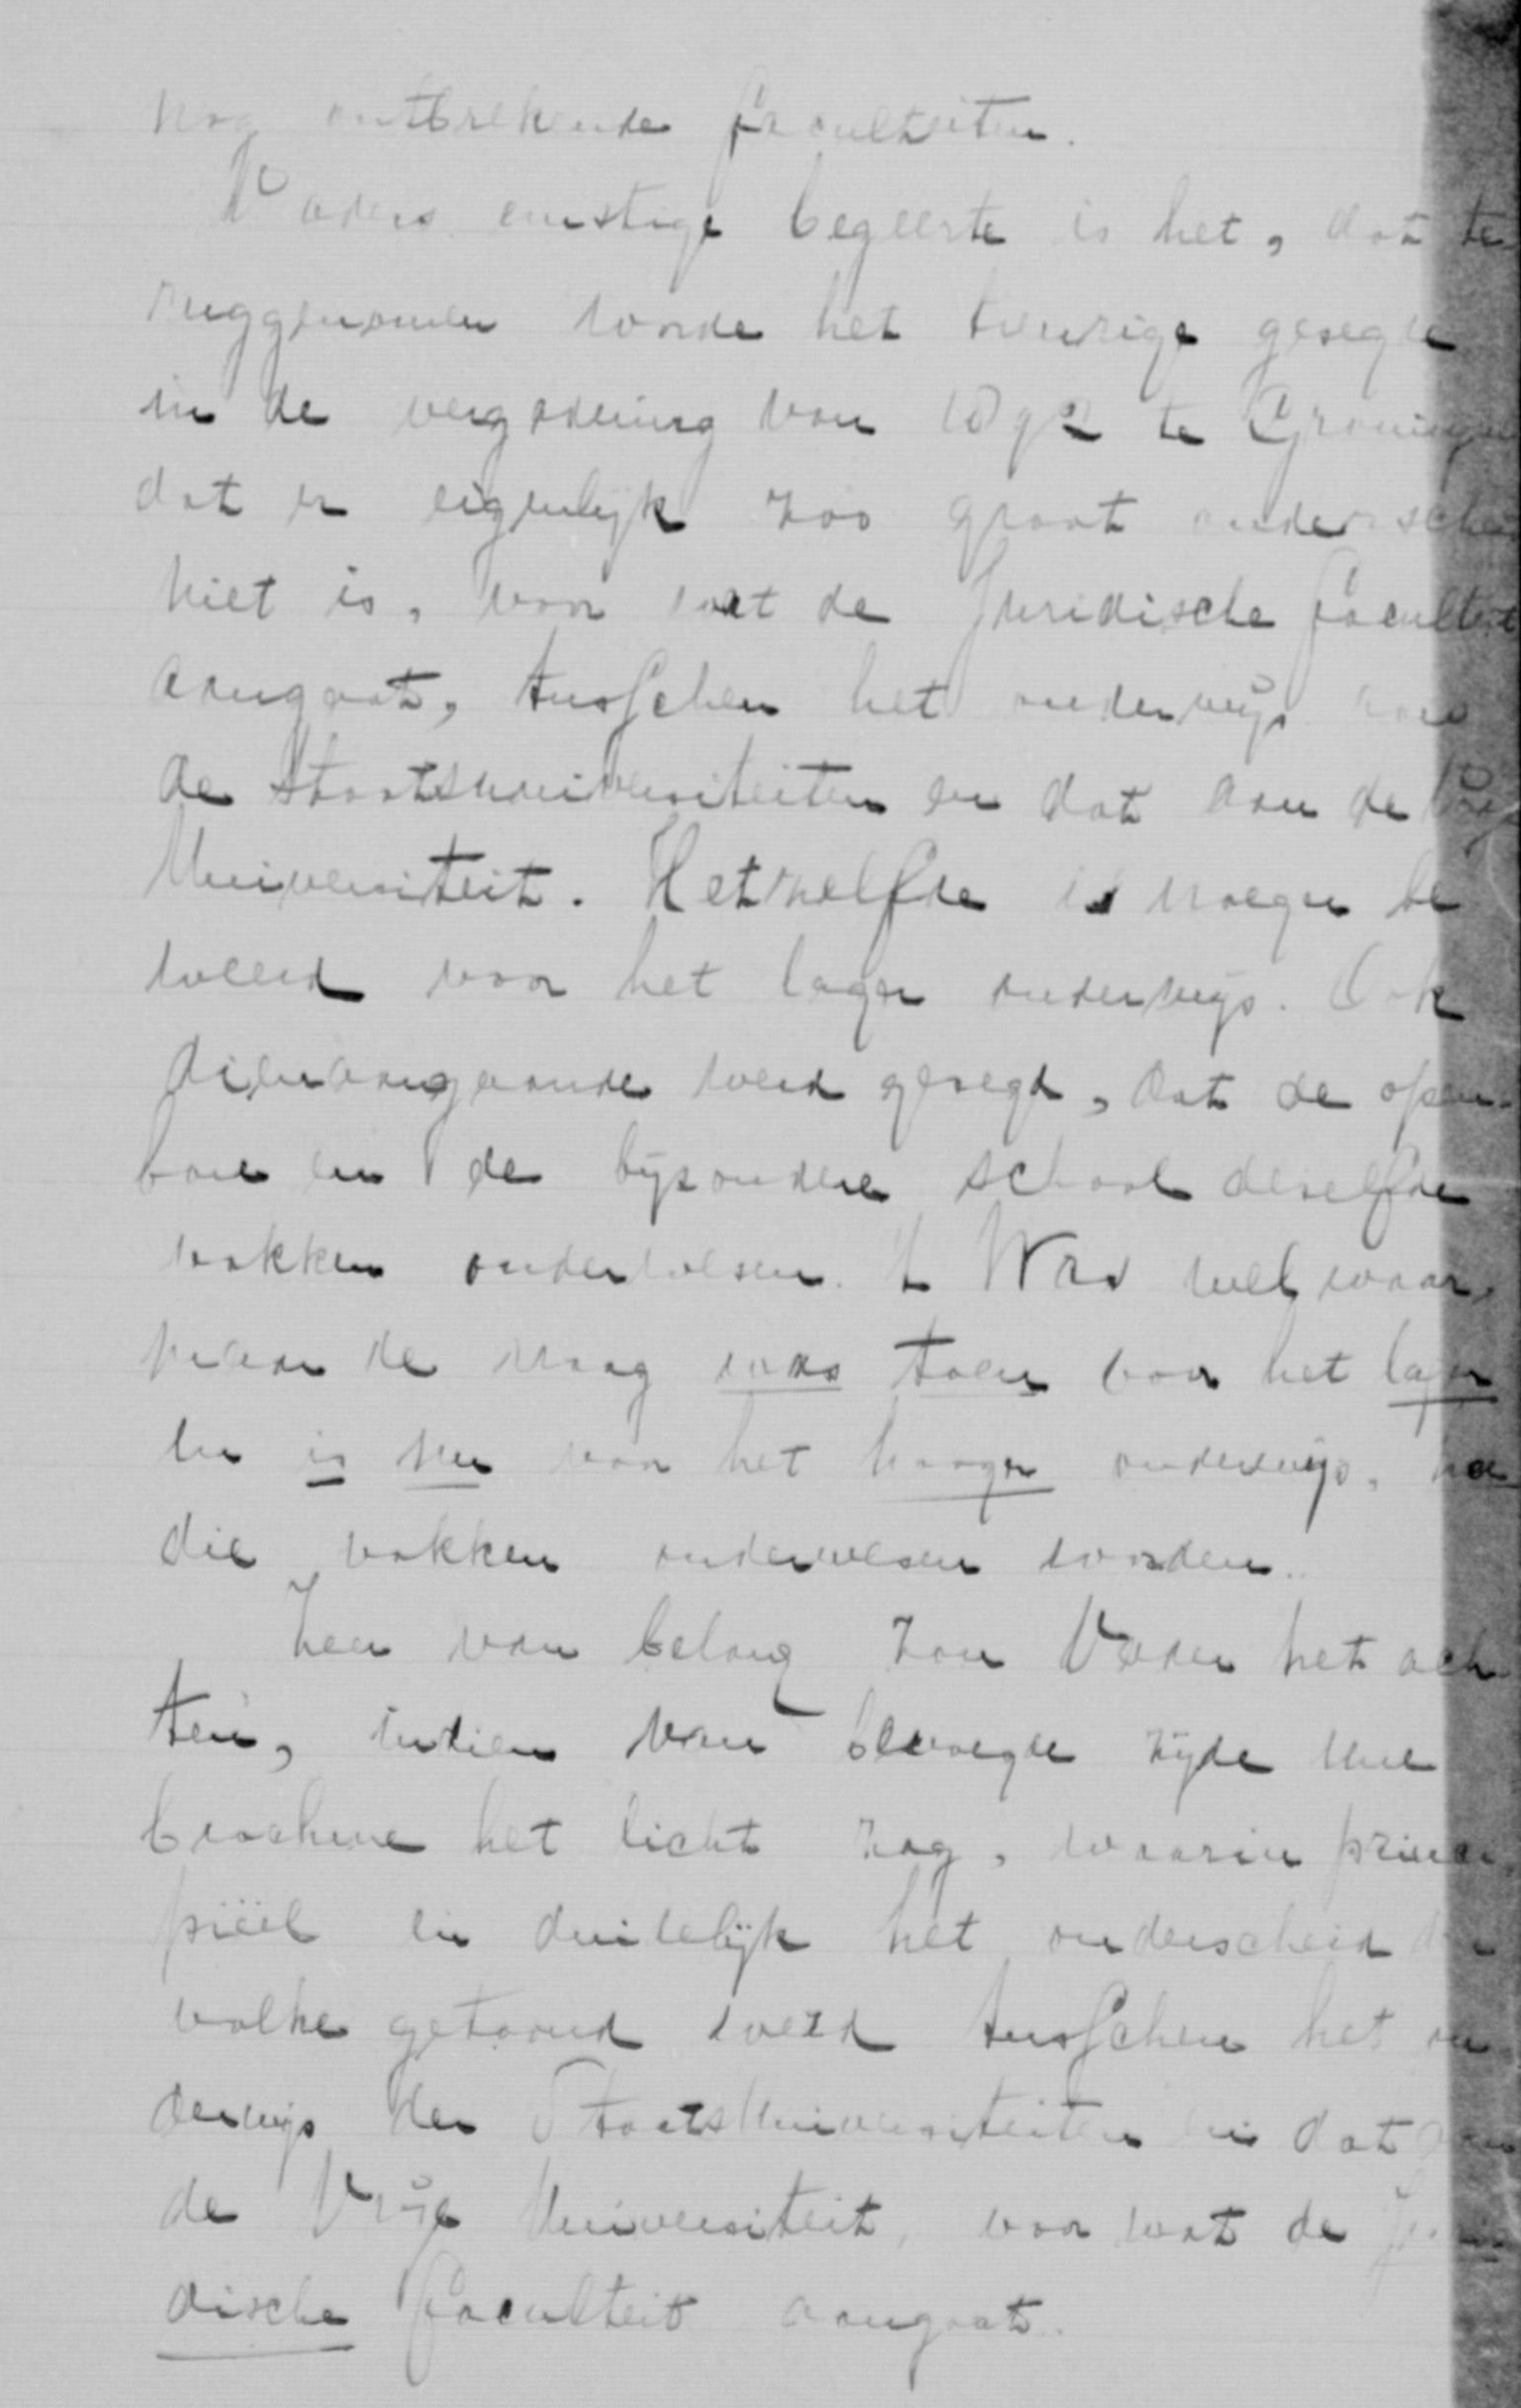 nog ontbrekende faculteiten.
Vaders ernstige begeerte is het, dat te-
ruggenomen worde het treurige gezegde
in de vergadering van 1892 te Groningen
dat er eigenlijk zoo groot onderscheid
niet is, voor wat de Juridische faculteit
aangaat, tusschen het onderwijs aan
de Staatsuniversiteiten en dat aan de Vrije
Universiteit. Hetzelfde is vroeger be
weerd voor het lager onderwijs. Ook
dienaangaande werd gezegd, dat de open-
bare en de bijzondere school dezelfde
vakken onderwezen. 't Was wel waar,
maar de vraag was toen voor het lager
en is nu voor het hooger onderwijs, hoe
die vakken onderwezen worden..
Zeer van belang zou Vader het ach-
ten, indien van bevoegde zijde eene
brochure het licht zag, waarin princi-
piëel en duidelijk het onderscheid den
volke getoond werd tusschen het on-
derwijs der StaatsUniversiteiten en dat aan
de Vrije Universiteit, voor wat de Juri-
dische faculteit aangaat.